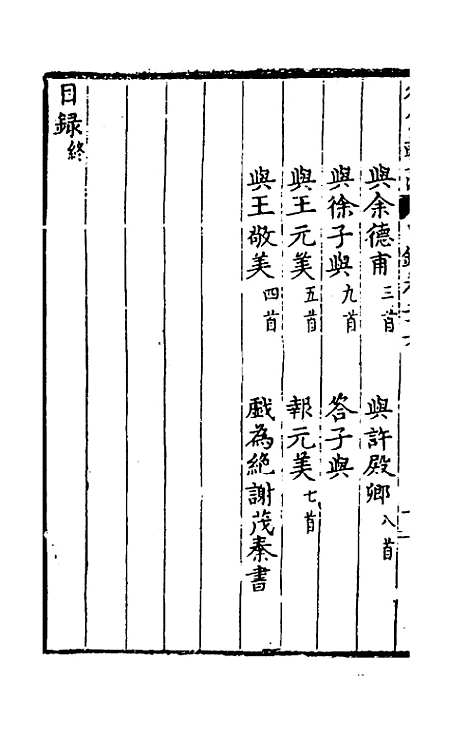 與余德甫三首 與許殿卿八首
與徐子與九首 答子與
與王元美五首 報元美七首
與王敬美四首 戲為絕謝茂秦書
目録終